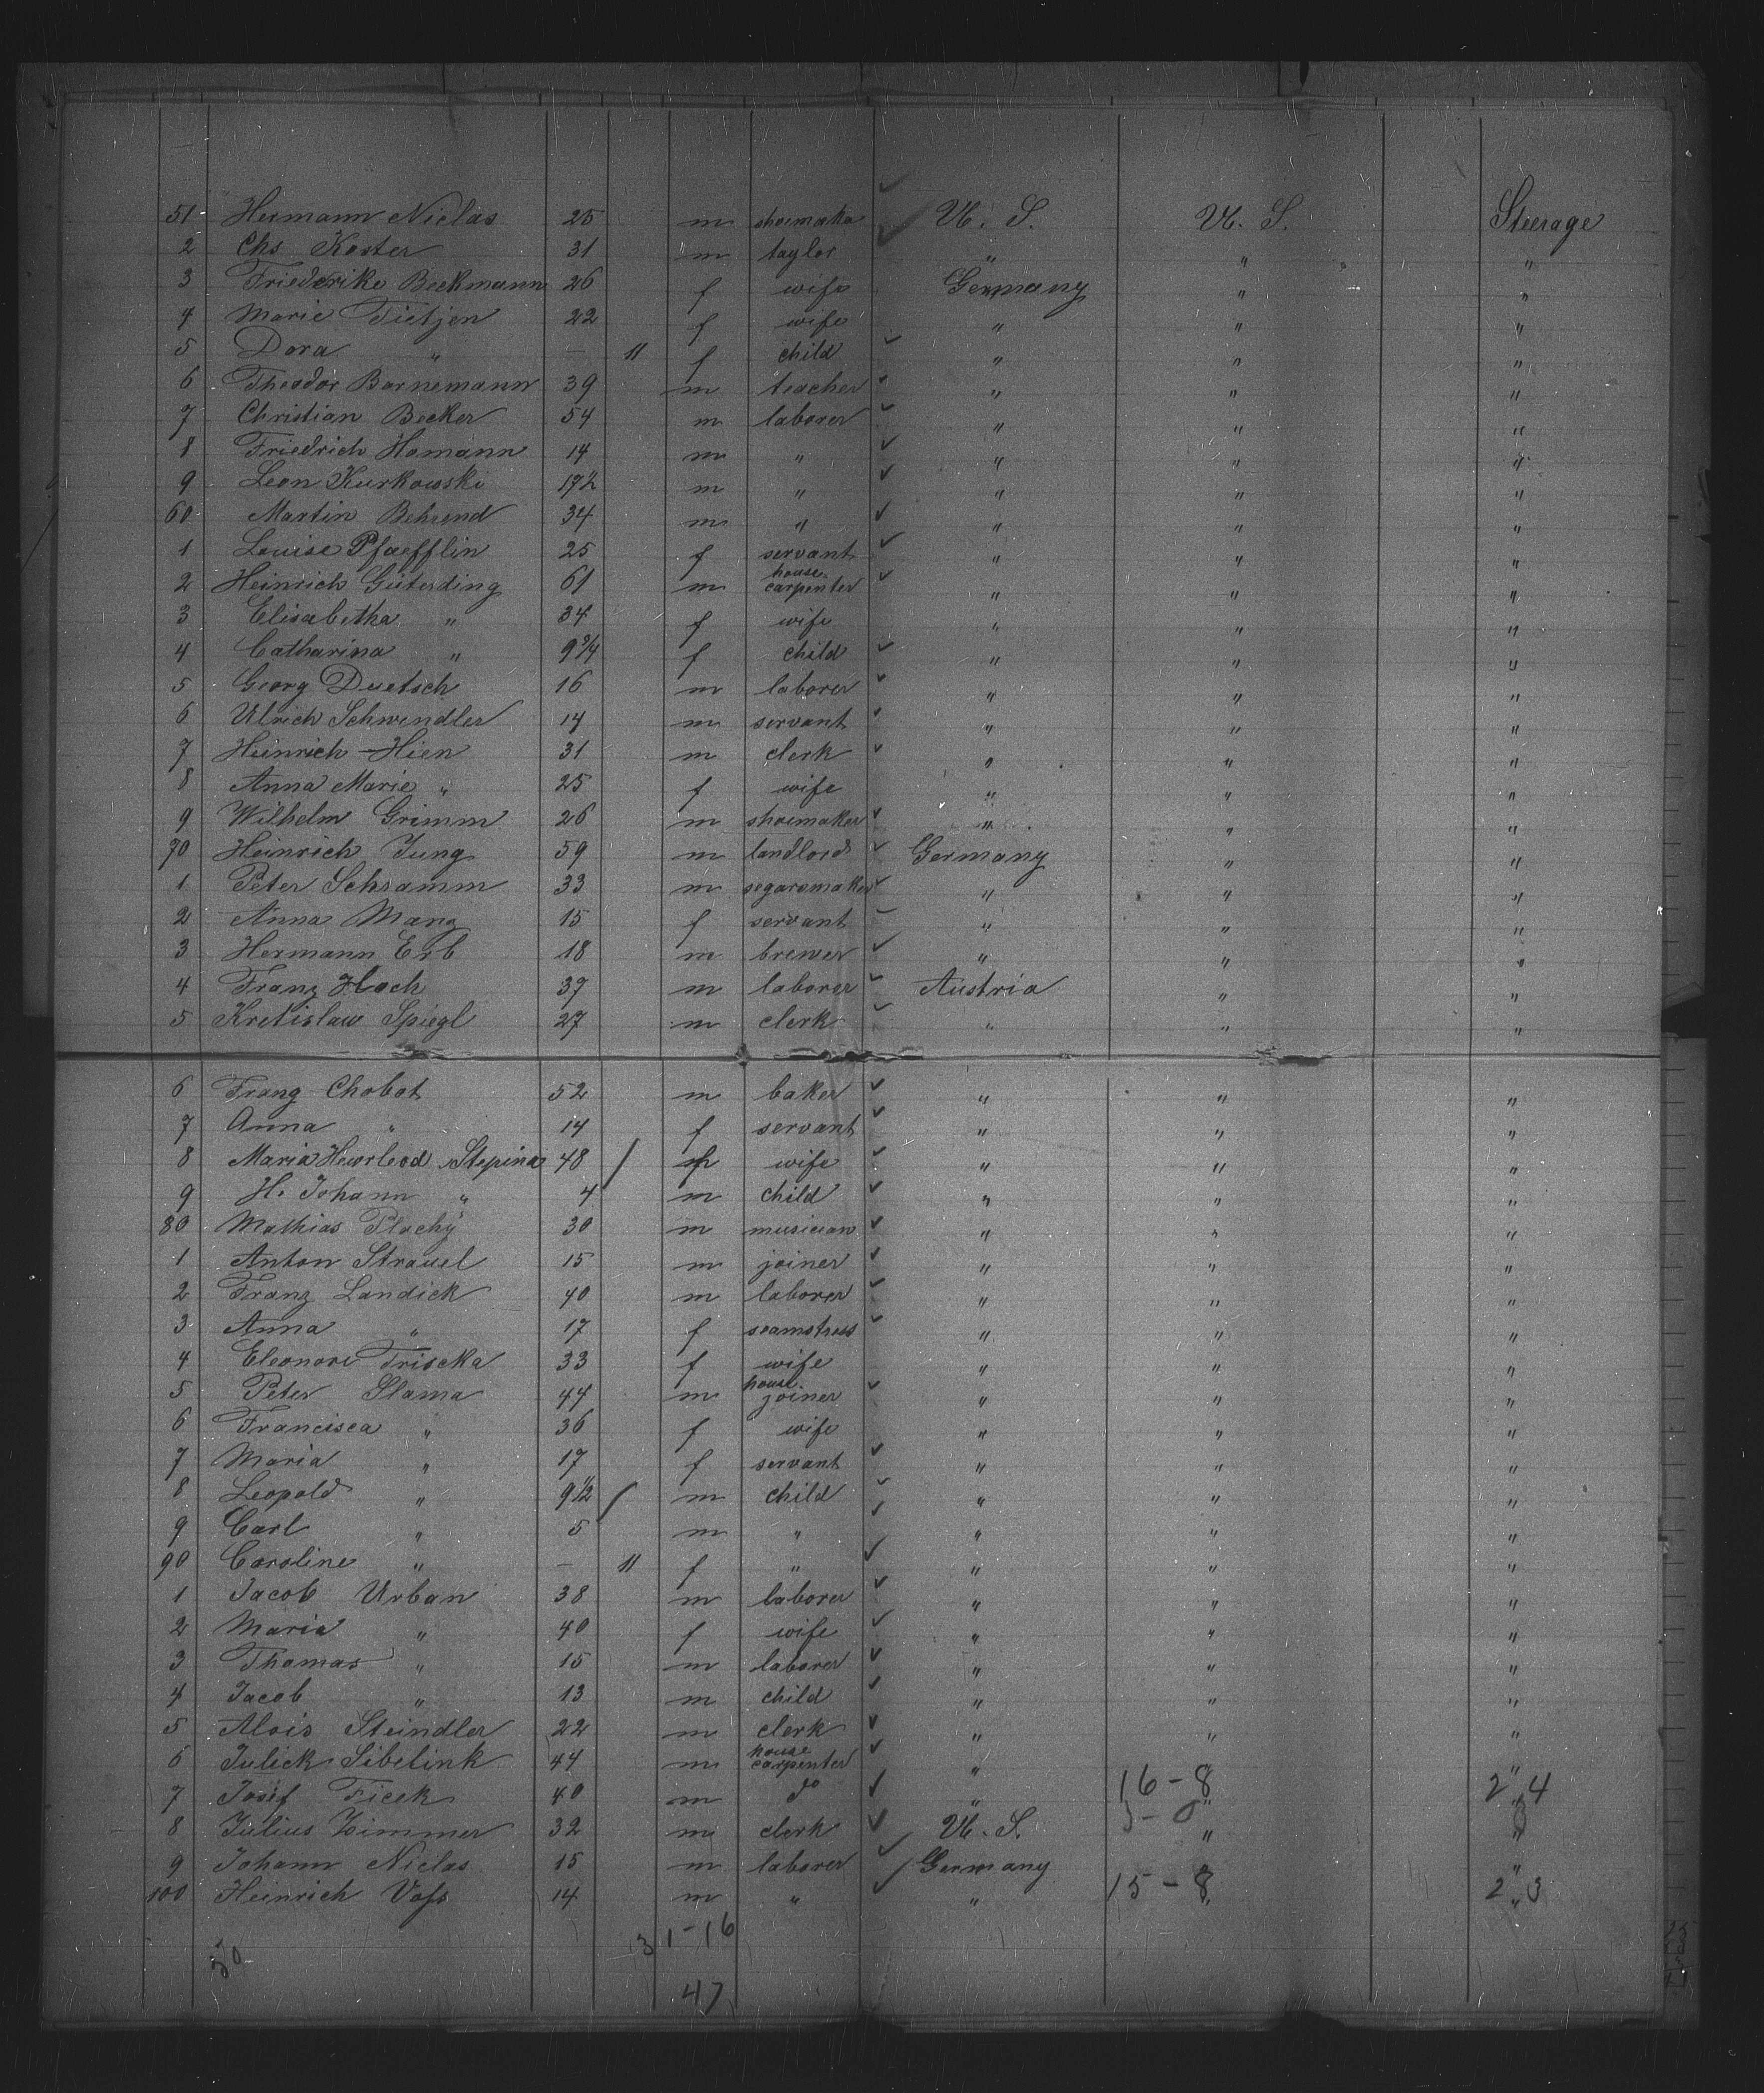 51 Hermann Niclas 25 m shoemaker U. S. U. S. Steerage
2 Chs Koster 31 m taylor " " "
3 Friederike Beckmann 26 f wife Germany " "
4 Marie Tietjen 22 f wife " " "
5 Dora " — 11 f child " " "
6 Theodor Bornemann 39 m teacher " " "
7 Christian Becker 54 m laborer " " "
8 Friedrich Homann 14 m " " " "
9 Leon Kurkowski m " " " "
60 Martin Behrend 34 m " " " "
1 Louise Pfaefflin 25 f servant " " "
2 Heinrich Güterding 61 m house carpenter " " "
3 Elisabetha " 34 f wife " " "
4 Catharina " 9 3/4 f child " " "
5 Georg Duetsch 16 m laborer " " "
6 Ulrich Schwendler 14 m servant " " "
7 Heinrich Hien 31 m clerk " " "
8 Anna Marie " 25 f wife " " "
9 Wilhelm Grimm 26 m shoemaker " " "
70 Heinrich Jung 59 m landlord Germany " "
1 Peter Schramm 33 m segaremaker " " "
2 Anna Mang 15 f servant " " "
3 Hermann Erb 18 m brewer " " "
4 Franz Hoch 37 m laborer Austria " "
5 Kretislaw Spiegl 27 m clerk " " "
6 Franz Chobot 52 m baker " " "
7 Anna " 14 f servant " " "
8 Maria Stepina 48 / f wife " " "
9 H. Johann " 4 m child " " "
80 Mathias Plachy 30 m musician " " "
1 Anton Strauel 15 m joiner " " "
2 Franz Landick 40 m laborer " " "
3 Anna " 17 f seamstress " " "
4 Eleonore Triscka 33 f wife " " "
5 Peter Slama 44 m house joiner " " "
6 Francisca " 36 f wife " " "
7 Maria " 17 f servant " " "
8 Leopold " 9 1/2 / m child " " "
9 Carl " 5 m " " " "
90 Caroline " — 11 f " " " "
1 Jacob Urban 38 m laborer " " "
2 Maria " 40 f wife " " "
3 Thomas " 15 m laborer " " "
4 Jacob " 13 m child " " "
5 Alois Steindler 22 m clerk " " "
6 Julick Sibelink 44 m house carpenter " " "
7 Josef Ficek 40 m do " 16-8 " 2 " 4
8 Julius Zimmer 32 m clerk U. S. " "
9 Johann Niclas 15 m laborer Germany "
100 Heinrich Voss 14 m " " 15-8 " 2 " 3
3 1-16
50
47